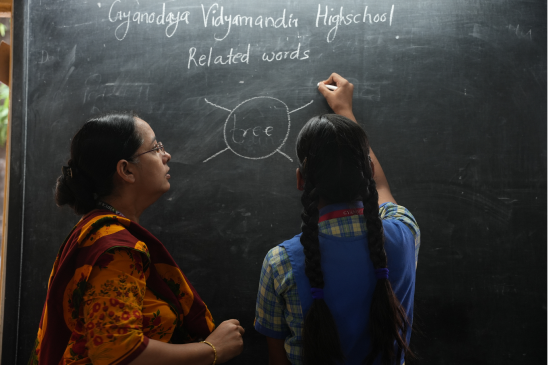 Gyanodaya Vidyamandir Highschool
Related words
tree